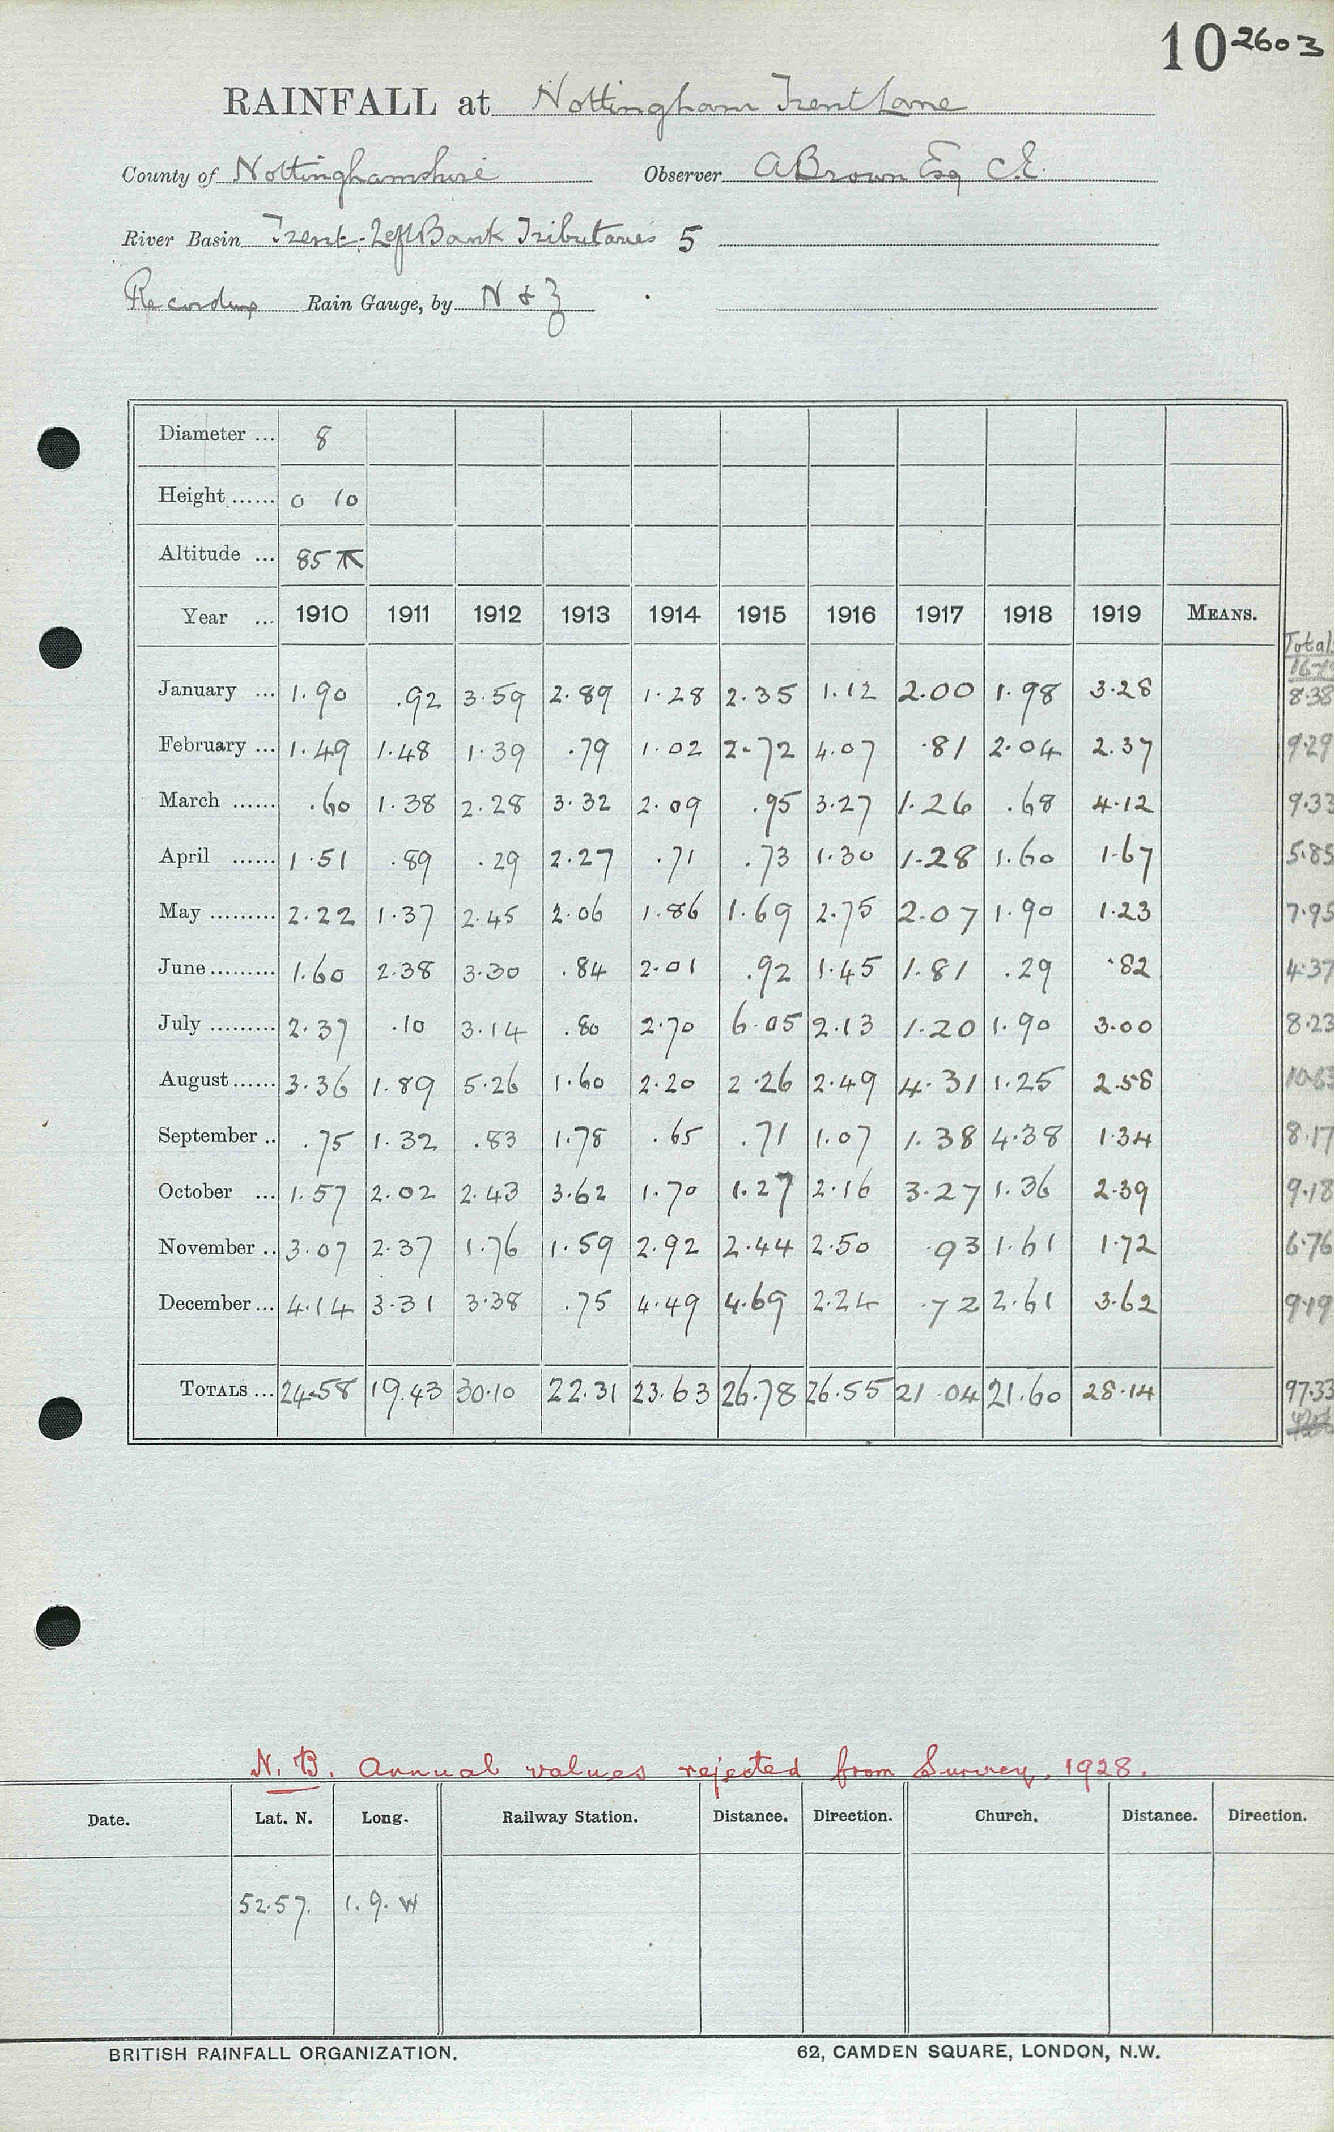 10 2603
RAINFALL at Nottingham Trent Lane
County of Nottinghamshire Observer A Brown Esq C.E.
River Basin Trent. Left Bank Tributaries 5
Recording Rain Gauge, by N & Z
Diameter ... 8
Height ...... 0 10
Altitude ... 85
Year ... 1910 1911 1912 1913 1914 1915 1916 1917 1918 1919 MEANS.
Total
January ... 1.90 .92 3.59 2.89 1.28 2.35 1.12 2.00 1.98 3.28 8.38
February ... 1.49 1.48 1.39 .79 1.02 2.72 4.07 .81 2.04 2.37 9.29
March ...... .60 1.38 2.28 3.32 2.09 .95 3.27 1.26 .68 4.12 9.33
April ...... 1.51 .89 .29 2.27 .71 .73 1.30 1.28 1.60 1.67 5.85
May ......... 2.22 1.37 2.45 2.06 1.86 1.69 2.75 2.07 1.90 1.23 7.95
June ......... 1.60 2.38 3.30 .84 2.01 .92 1.45 1.81 .29 .82 4.37
July ......... 2.37 .10 3.14 .80 2.70 6.05 2.13 1.20 1.90 3.00 8.23
August ...... 3.36 1.89 5.26 1.60 2.20 2.26 2.49 4.31 1.25 2.58 10.63
September .. .75 1.32 .83 1.78 .65 .71 1.07 1.38 4.38 1.34 8.17
October ... 1.57 2.02 2.43 3.62 1.70 1.27 2.16 3.27 1.36 2.39 9.18
November .. 3.07 2.37 1.76 1.59 2.92 2.44 2.50 .93 1.61 1.72 6.76
December ... 4.14 3.31 3.38 .75 4.49 4.69 2.24 .72 2.61 3.62 9.19
TOTALS ... 24.58 19.43 30.10 22.31 23.63 26.78 26.55 21.04 21.60 28.14 97.33
N.B. Annual values rejected from Survey, 1928.
Date. Lat. N. Long. Railway Station. Distance. Direction. Church. Distance. Direction.
52.57. 1.9.W
BRITISH RAINFALL ORGANIZATION. 62, CAMDEN SQUARE, LONDON, N.W.